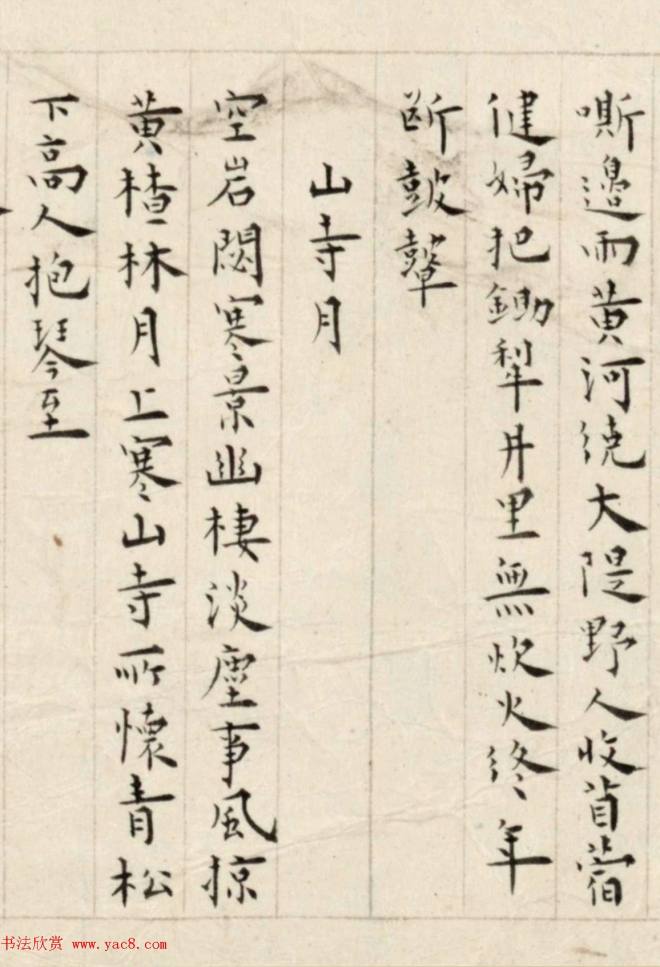 嘶邊雨黃河繞大隄野人收苜蓿
健婦把鋤犂井里無炊火終年
斷鼓鼙
山寺月
空岩閟寒景幽棲淡塵事風掠
黃楂林月上寒山寺所懷青松
下高人抱琴至
书法欣赏 www.yac8.com